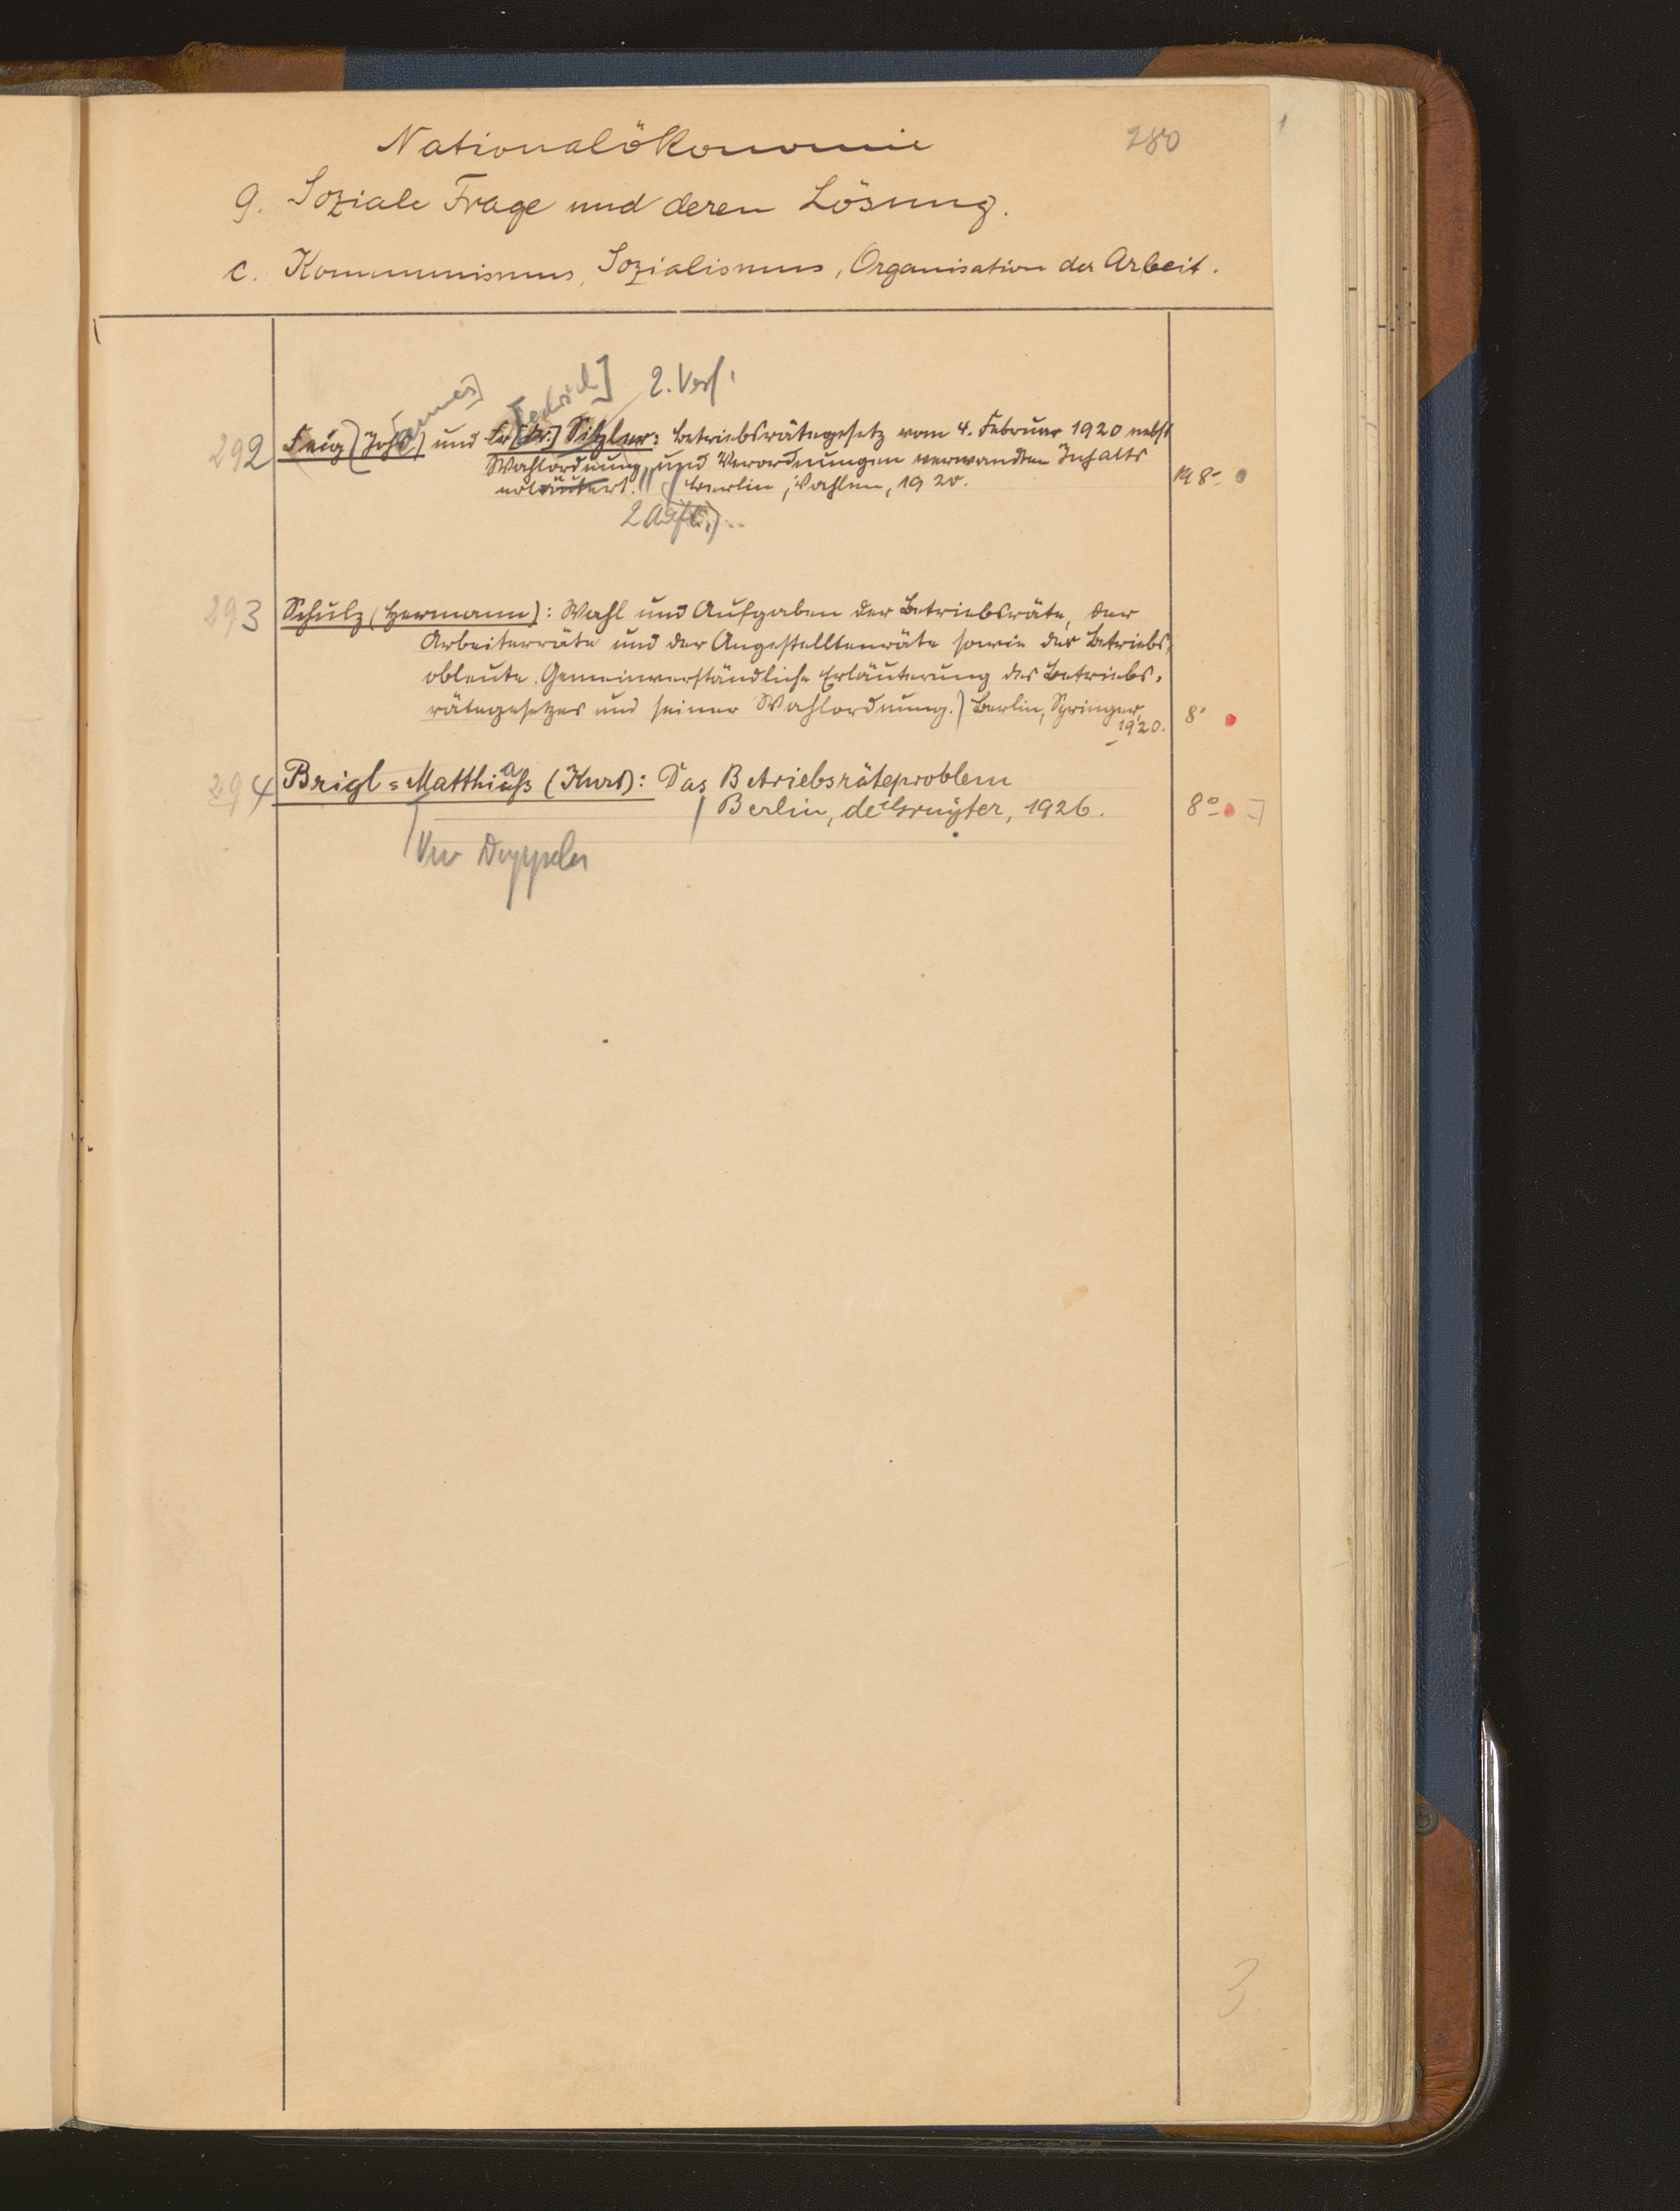 Nationalökonomie 280
9. Soziale Frage und deren Lösung.
c. Kommunismus, Sozialismus, Organisation der Arbeit.
2. Verf.
292 Feig (Joh[annes]) und Fr[iedrich] Sitzler: Betriebsrätegesetz vom 4. Februar 1920 nebst
Wahlordnung und Verordnungen verwandten Inhalts
erläutert. Berlin, Vahlen, 1920. 8°
2 Aufl.
293 Schulz (Hermann): Wahl und Aufgaben der Betriebsräte, der
Arbeiterräte und der Angestelltenräte sowie der Betriebs-
obleute. Gemeinverständliche Erläuterung des Betriebs-
rätegesetzes und seiner Wahlordnung.) Berlin, Springer, 8°
1920.
294 Brigl=Matthiaß (Kurt): Das Betriebsräteproblem
Berlin, de Gruyter, 1926. 8°
3